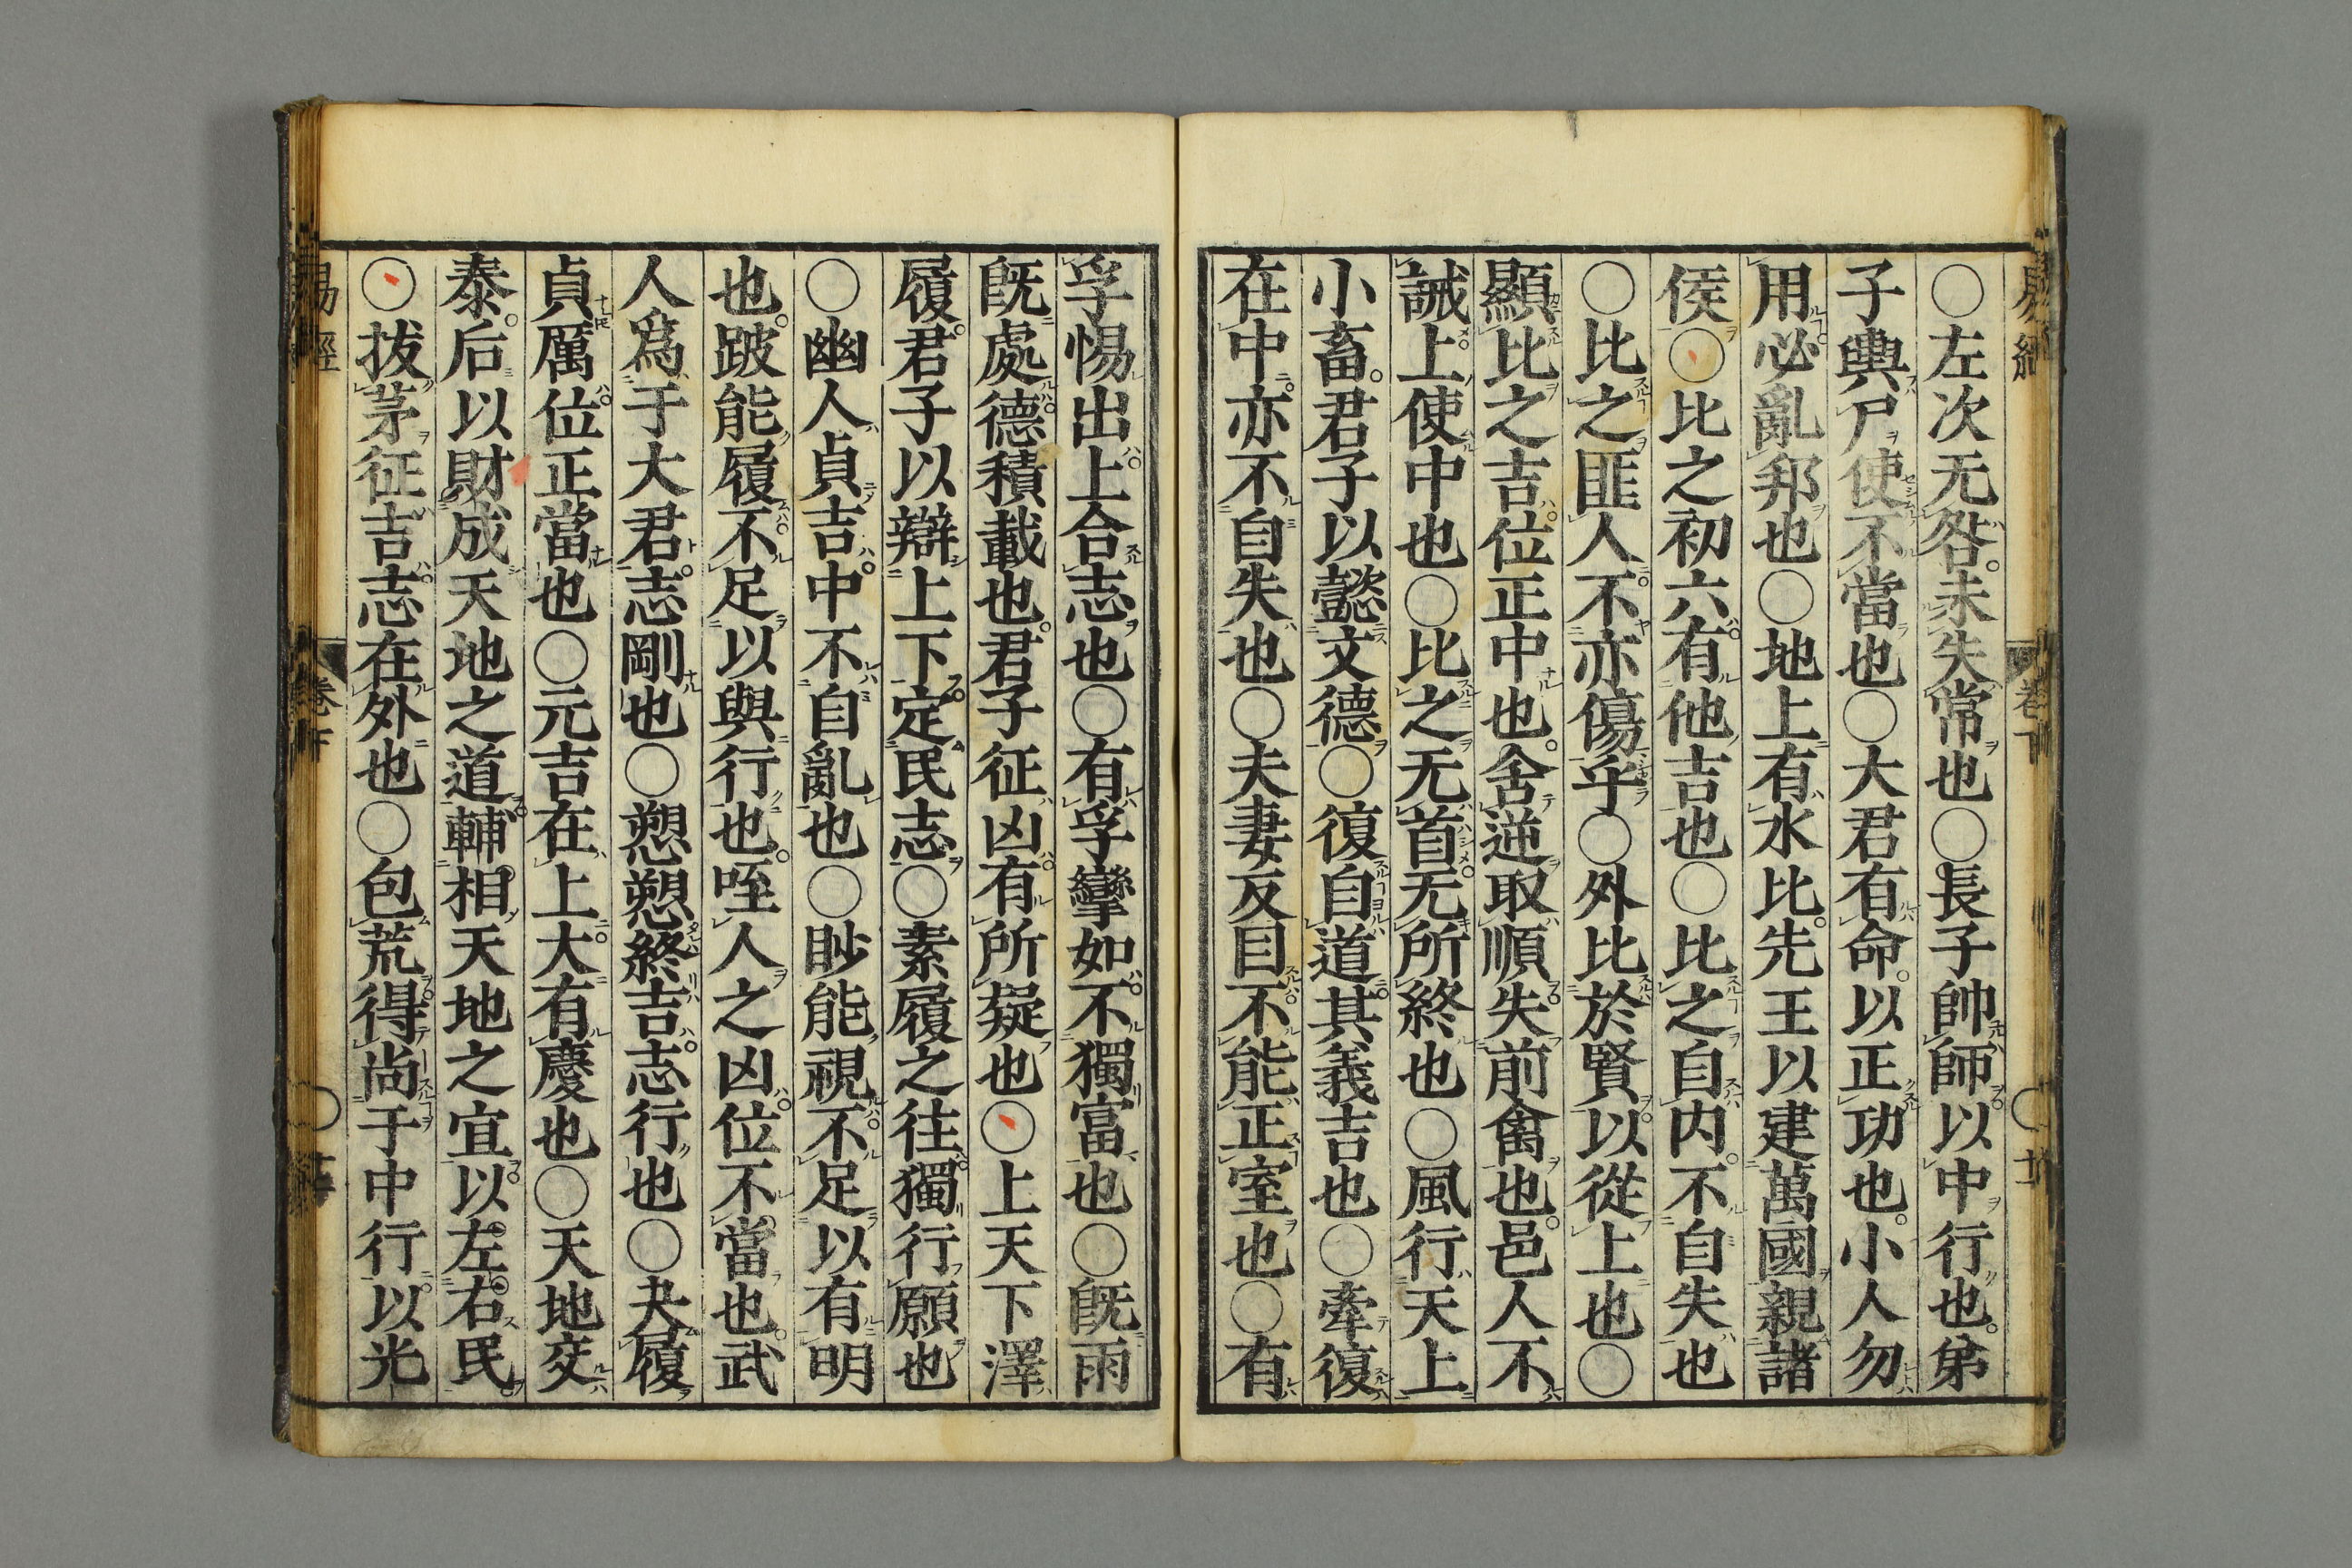 ○左次无咎未失常也○長子帥師以中行也弟
子輿尸使不當也○大君有命以正功也小人勿
用必亂邦也○地上有水比先王以建萬國親諸
侯○比之初六有他吉也○比之自内不自失也
○比之匪人不亦傷乎○外比於賢以從上也○
顯比之吉位正中也舍逆取順失前禽也邑人不
誡上使中也○比之无首无所終也○風行天上
小畜君子以懿文德○復自道其義吉也○牽復
在中亦不自失也○夫妻反目不能正室也○有
孚惕出上合志也○有孚攣如不獨富也○旣雨
旣處德積載也君子征凶有所疑也○上天下澤
履君子以辯上下定民志○素履之往獨行願也
○幽人貞吉中不自亂也○眇能視不足以有明
也跛能履不足以與行也咥人之凶位不當也武
人爲于大君志剛也○愬愬終吉志行也○夬履
貞厲位正當也○元吉在上大有慶也○天地交
泰后以財成天地之道輔相天地之宜以左右民
○拔茅征吉志在外也○包荒得尚于中行以光
易經 卷下